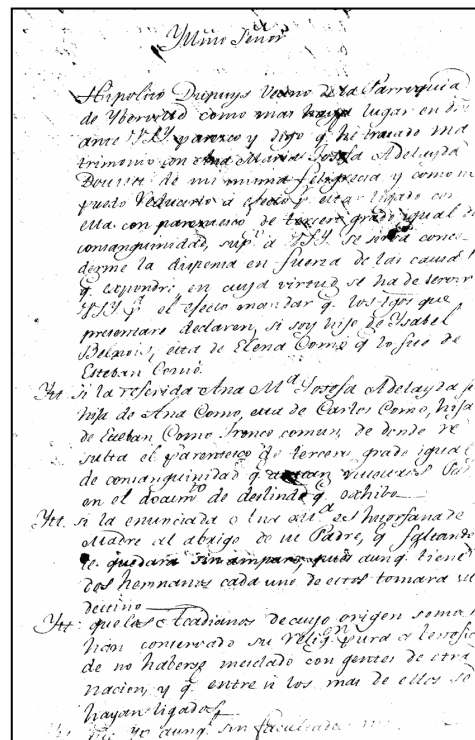 Yllmo Señor
Hipolito Dupuys Vecino de la Parroquia
de Yberville como mas haya lugar en dro
ante VSY parezco y digo q. he tratado ma
trimonio con Ana Maria Josefa Adelayda
de mi misma feligrecia y como no
puedo reducirlo a efecto p. estar ligado con
ella con parentesco de tercero grado igual de
consanguinidad, supco a VSY se sirva conce-
derme la dispensa en fuerza de las causas
q. expondré en cuya virtud se ha de servir
VSY pa el efecto mandar q. los tgos que
presentare declaren, si soy hijo de Ysabel
esta de Elena Como q. lo fue de
Esteban Como.
Ytt. si la referida Ana Ma Josefa Adelayda es
hija de Ana Como, esta de Carlos Como, hijo
de Esteban Como tronco comun, de donde re
sulta el parentesco de tercero grado igual
de consanguinidad q.
en el docum.to de deslinde q. exhibo
Ytt. si la enunciada es huerfana de
Madre al abrigo de su Padre, q. faltando
le quedara sin amparo, pues aunq. tiene
dos hermanos cada uno de estos tomara su
destino
Ytt. que los Acadianos de cuyo origen somos
han conservado su religon pura a beneficio
de no haberse mesclado con gentes de otra
nacion, y q. entre si los mas de ellos se
hayan ligados
Ytt. yo aunq. sin facultades